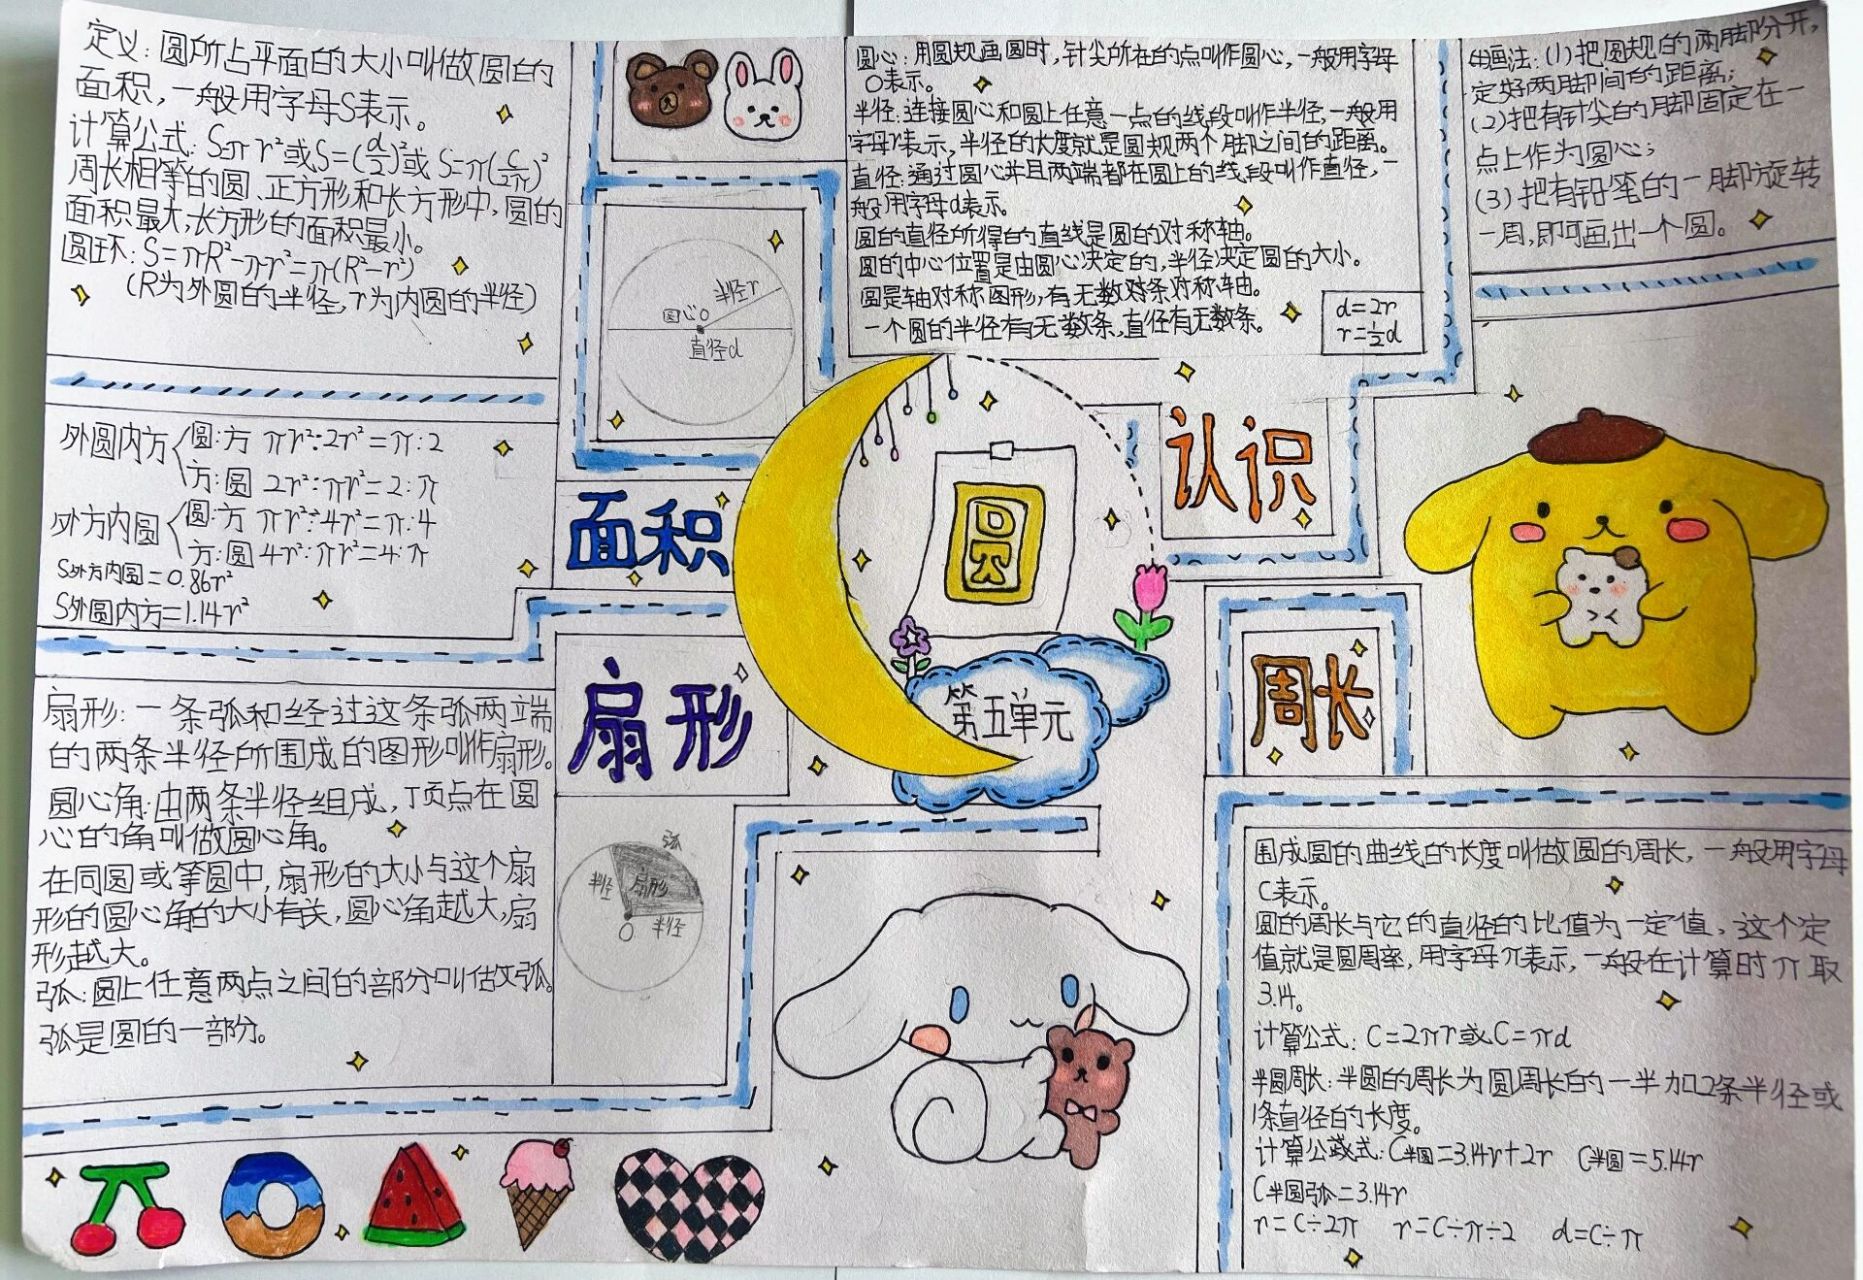 定义：圆所占平面的大小叫做圆的
面积，一般用字母S表示。
计算公式：S=πr²或S=(d/2)²或 S=π(C/2π)²
周长相等的圆、正方形和长方形中，圆的
面积最大，长方形的面积最小。
圆环：S=πR²-πr²=π(R²-r²)
(R为外圆的半径，r为内圆的半径)
外圆内方
圆:方 πr²:2r²=π:2
方:圆 2r²:πr²=2:π
外方内圆
圆:方 πr²:4r²=π:4
方:圆 4r²:πr²=4:π
S外方内圆=0.86r²
S外圆内方=1.14r²
面积
半径r
圆心O
直径d
圆心：用圆规画圆时，针尖所在的点叫作圆心，一般用字母
O表示。
半径：连接圆心和圆上任意一点的线段叫作半径，一般用
字母r表示，半径的长度就是圆规两个脚之间的距离。
直径：通过圆心并且两端都在圆上的线段叫作直径，一
般用字母d表示。
圆的直径所得的直线是圆的对称轴。
圆的中心位置是由圆心决定的，半径决定圆的大小。
圆是轴对称图形，有无数对条对称轴。
一个圆的半径有无数条，直径有无数条。
d=2r
r=½d
画法：(1)把圆规的两脚分开，
定好两脚间的距离；
(2)把有针尖的脚固定在一
点上作为圆心；
(3)把有铅笔的一脚旋转
一周，即可画出一个圆。
认识
圆
第五单元
扇形
扇形：一条弧和经过这条弧两端
的两条半径所围成的图形叫作扇形。
圆心角：由两条半径组成，顶点在圆
心的角叫做圆心角。
在同圆或等圆中，扇形的大小与这个扇
形的圆心角的大小有关，圆心角越大，扇
形越大。
弧：圆上任意两点之间的部分叫做弧。
弧是圆的一部分。
弧
半径
扇形
半径
O
周长
围成圆的曲线的长度叫做圆的周长，一般用字母
C表示。
圆的周长与它的直径的比值为一定值，这个定
值就是圆周率，用字母π表示，一般在计算时π取
3.14。
计算公式：C=2πr或C=πd
半圆周长：半圆的周长为圆周长的一半加2条半径或
1条直径的长度。
计算公式：C半圆=3.14r+2r C半圆=5.14r
C半圆弧=3.14r
r=C÷2π r=C÷π÷2 d=C÷π